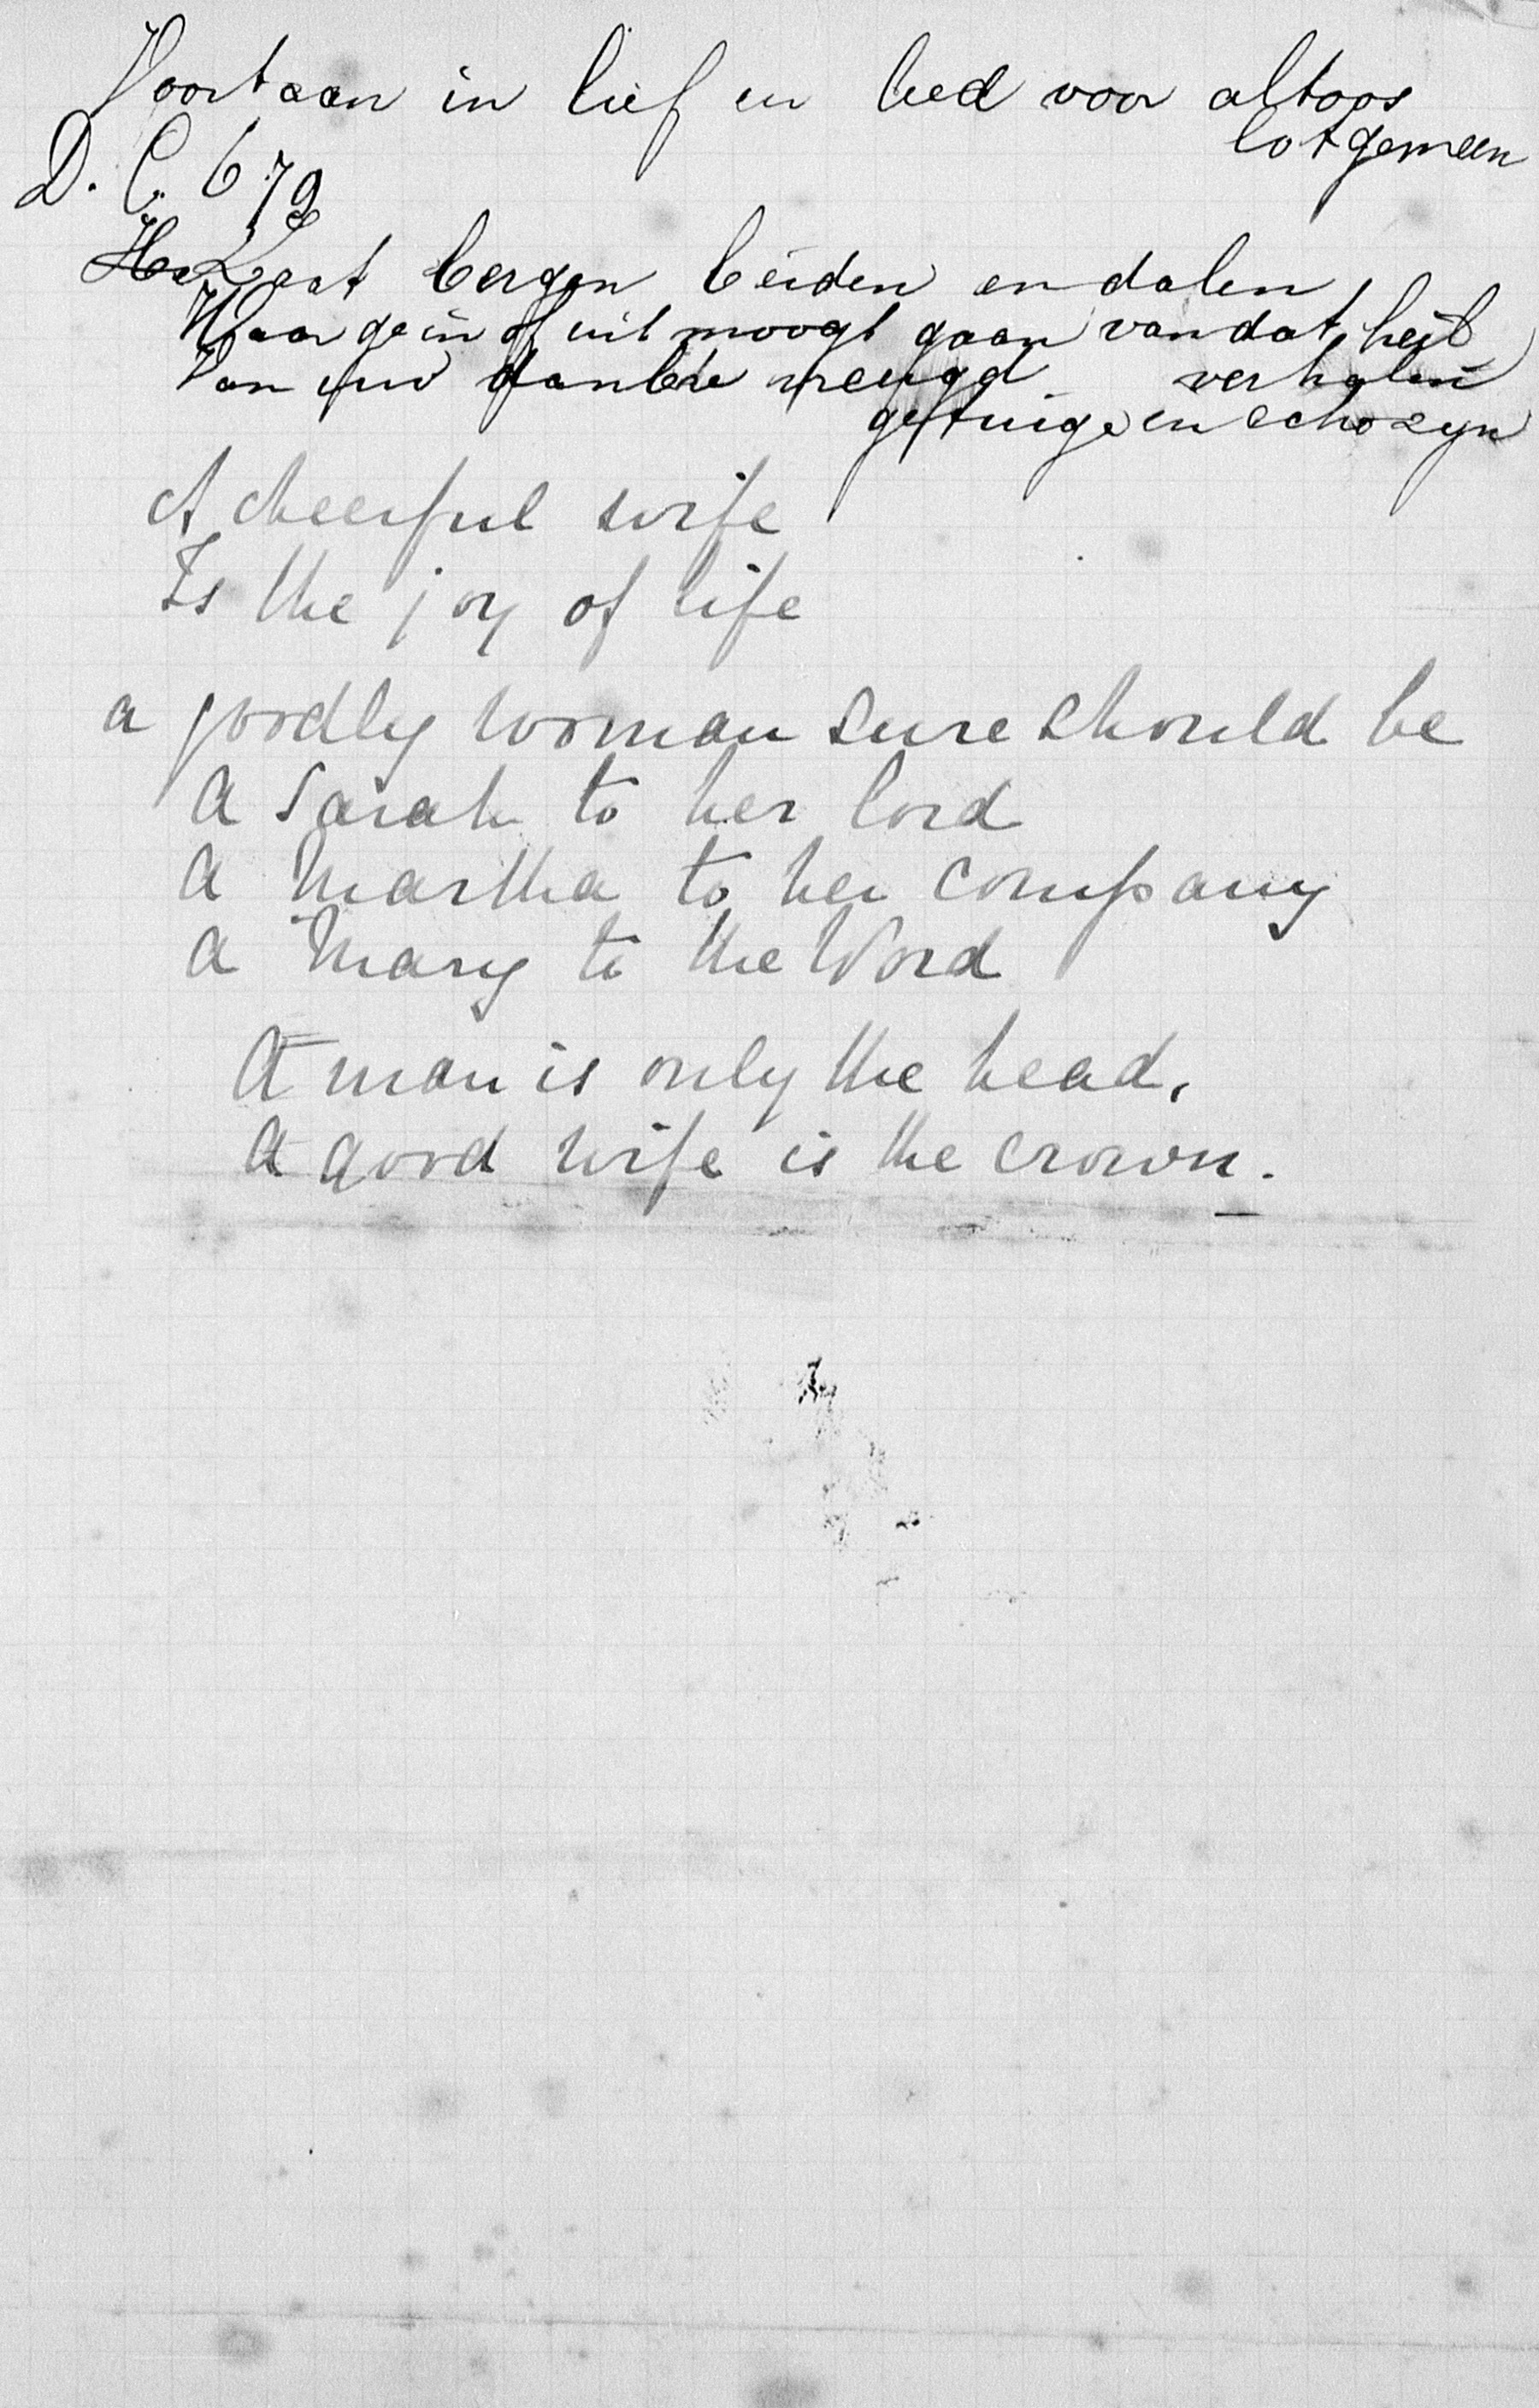 Voortaan in lief en leed voor altoos
lotgemeen
D. C. 672
Laat bergen beiden en dalen
Waar ge in of uit moogt gaan van dat heil
Van uw danbre vreugd verhalen
getuige en echo zyn
A cheerful wife
Is the joy of life
a goodly woman sure should be
A Sarah to her lord
A Martha to her company
A Mary to the Word
A man is only the head,
A good wife is the crown.